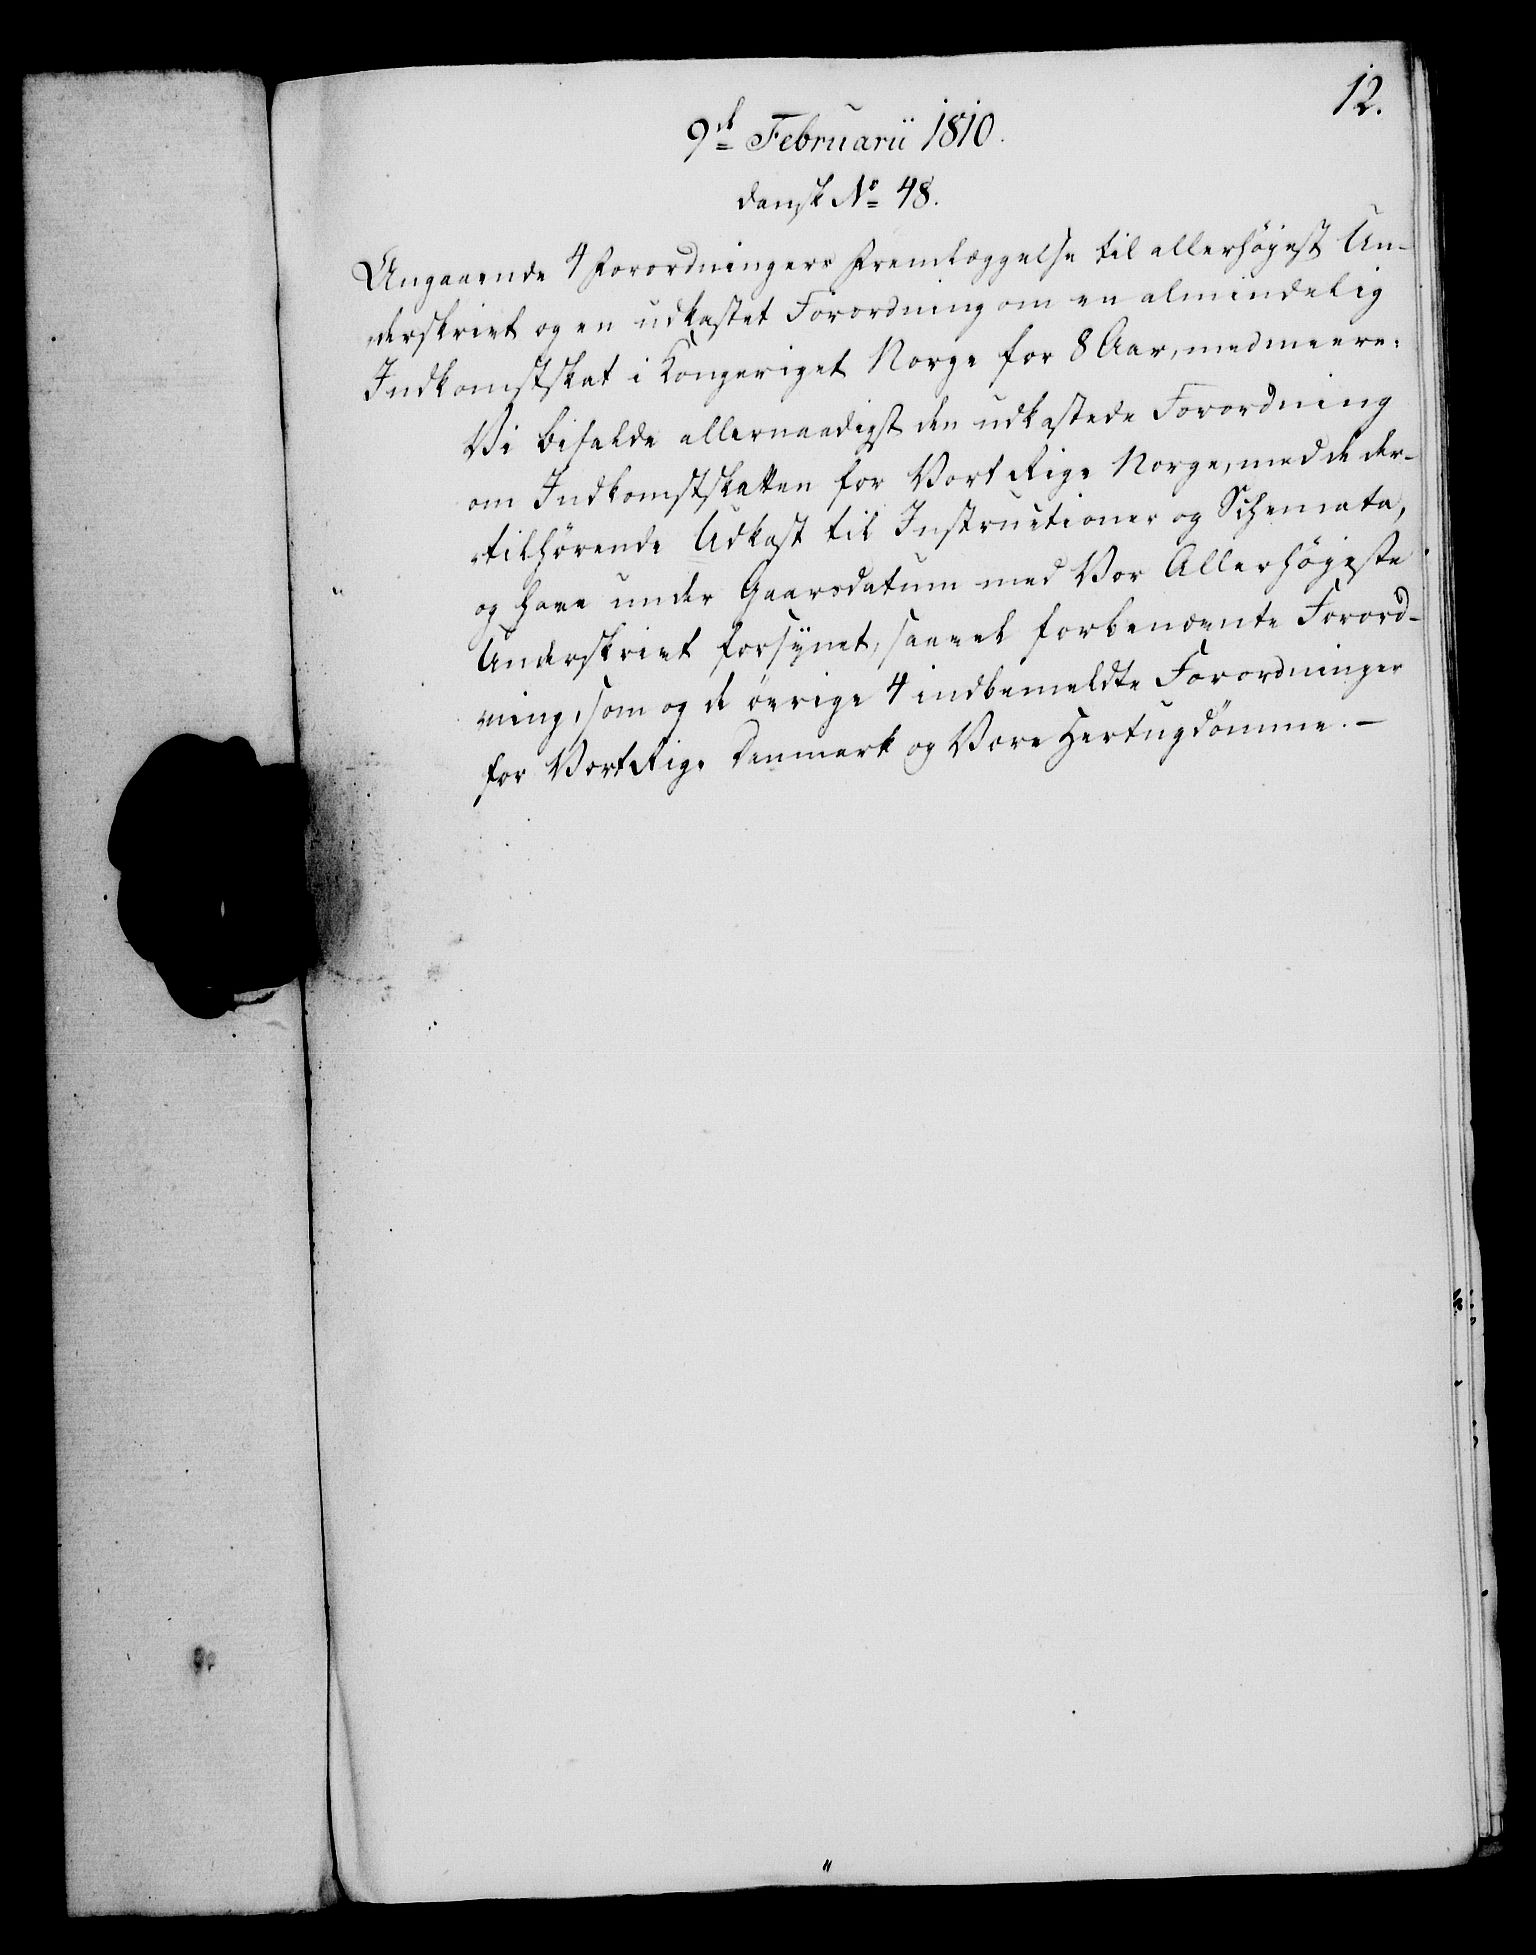 12.
9d Februarii 1810.
dansk No 48.
Angaaende 4 Forordningers Fremlæggelse til allerhøjest Un-
derskrivt og en udkastet Forordning om en almindelig
Indkomstskat i Kongeriget Norge for 8 Aar, med meere.
Vi bifalde allernaadigst den udkastede Forordning
om Indkomstskatten for Vort Rige Norge, med de der-
tilhørende Udkast til Instructioner og Schemata,
og have under Gaarsdatum med Vor Allerhøjeste
Underskrivt forsynet, saavel forbenævnte Forord-
ning, som og de øvrige 4 indbemeldte Forordninger
for Vort Rige Danmark og Vore Hertugdømme. -